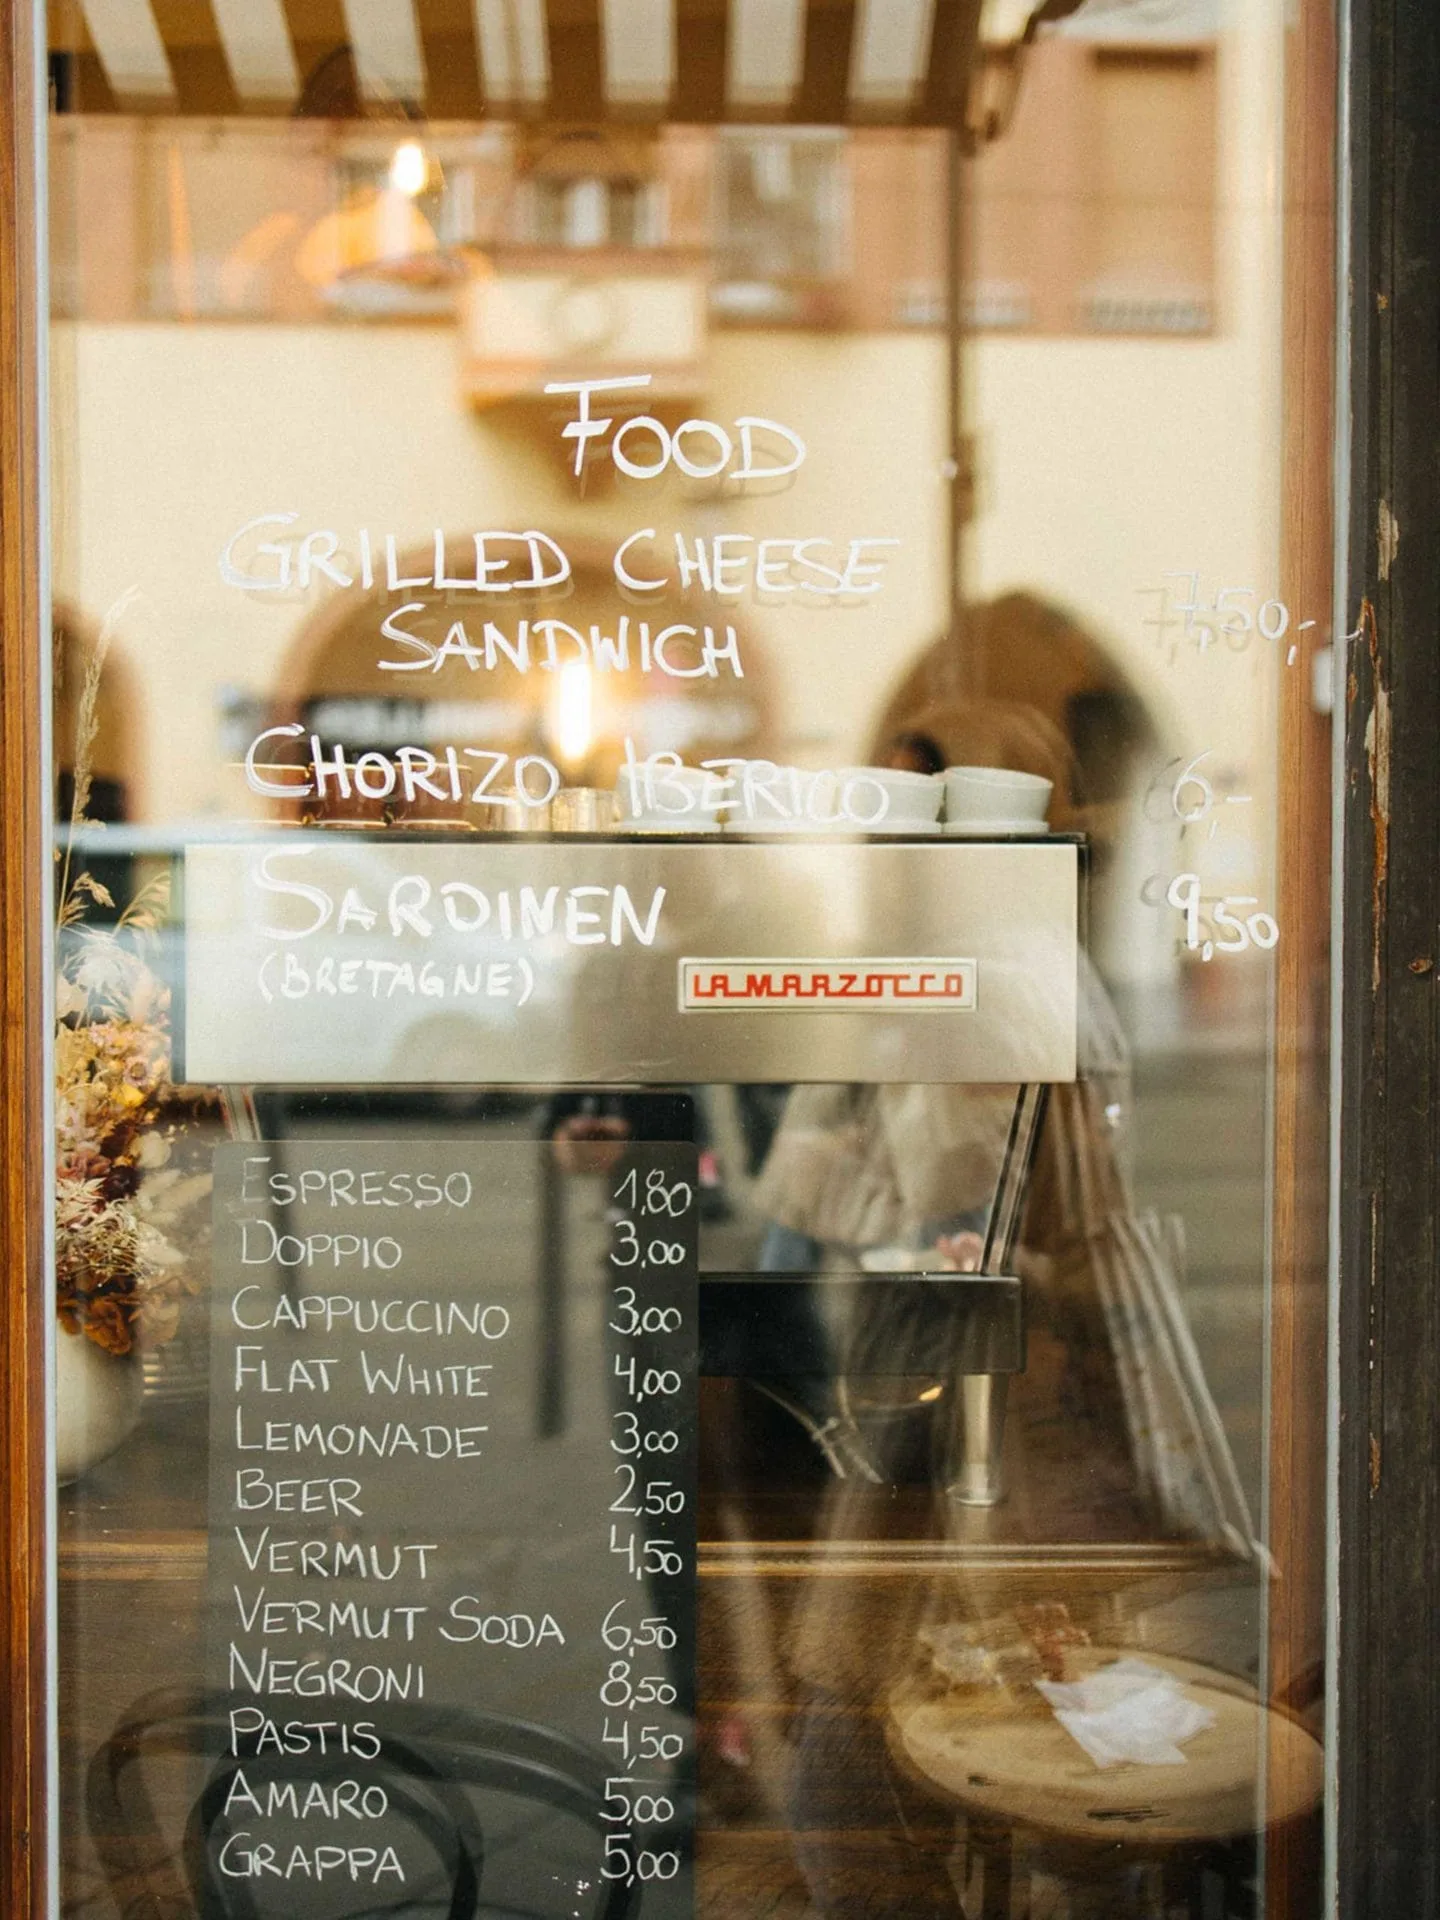 FOOD
GRILLED CHEESE
SANDWICH 7,50,-
CHORIZO IBERICO 6,-
SARDINEN 9,50
(BRETAGNE)
LA MARZOCCO
ESPRESSO 1,80
DOPPIO 3,00
CAPPUCCINO 3,00
FLAT WHITE 4,00
LEMONADE 3,00
BEER 2,50
VERMUT 4,50
VERMUT SODA 6,50
NEGRONI 8,50
PASTIS 4,50
AMARO 5,00
GRAPPA 5,00